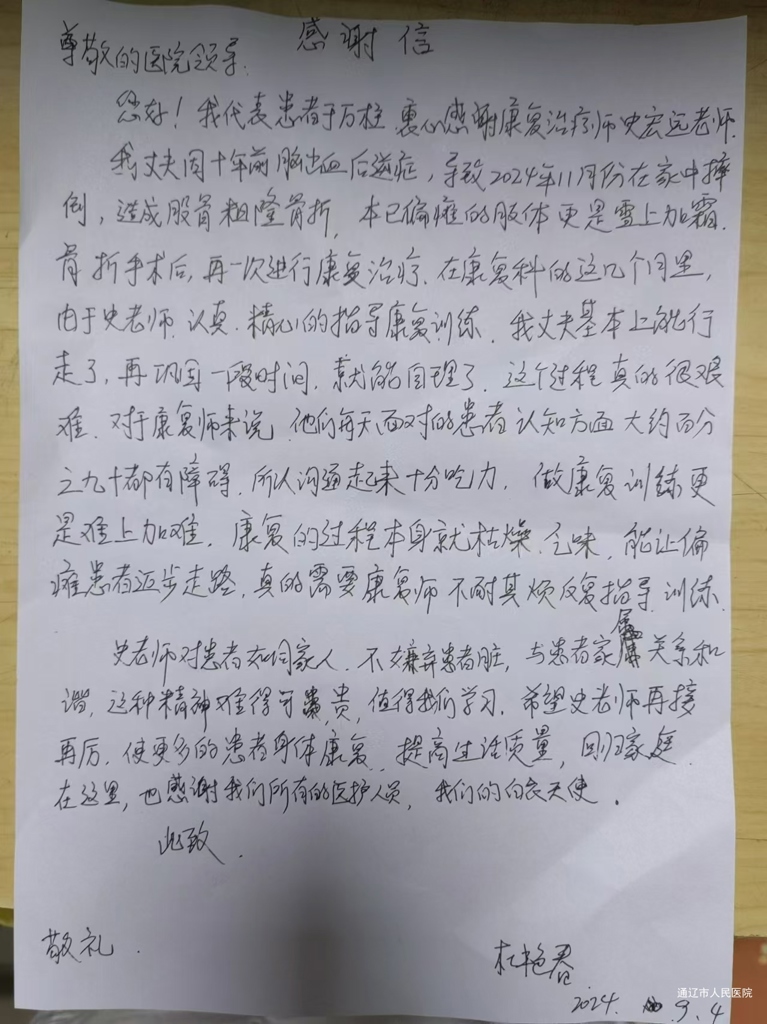 感谢信
尊敬的医院领导:
您好！我代表患者于万柱 衷心感谢康复治疗师史宏远老师.
我丈夫因十年前脑出血后遗症，导致2024年11月份在家中摔
倒，造成股骨粗隆骨折，本已偏瘫的肢体更是雪上加霜.
骨折手术后,再一次进行康复治疗.在康复科的这几个月里,
由于史老师.认真.精心的指导康复训练.我丈夫基本上能行
走了,再巩固一段时间.就能自理了.这个过程真的很艰
难.对于康复师来说.他们每天面对的患者认知方面大约百分
之九十都有障碍.所以沟通起来十分吃力.做康复训练更
是难上加难.康复的过程本身就枯燥.乏味,能让偏
瘫患者迈步走路,真的需要康复师不耐其烦反复指导.训练.
史老师对患者如同家人.不嫌弃患者脏,与患者家属关系和
谐,这种精神难得可贵,值得我们学习.希望史老师再接
再厉.使更多的患者身体康复.提高生活质量,回归家庭.
在这里,也感谢我们所有的医护人员,我们的白衣天使.
此致.
敬礼.
杜艳春
2024. 9.4
通辽市人民医院